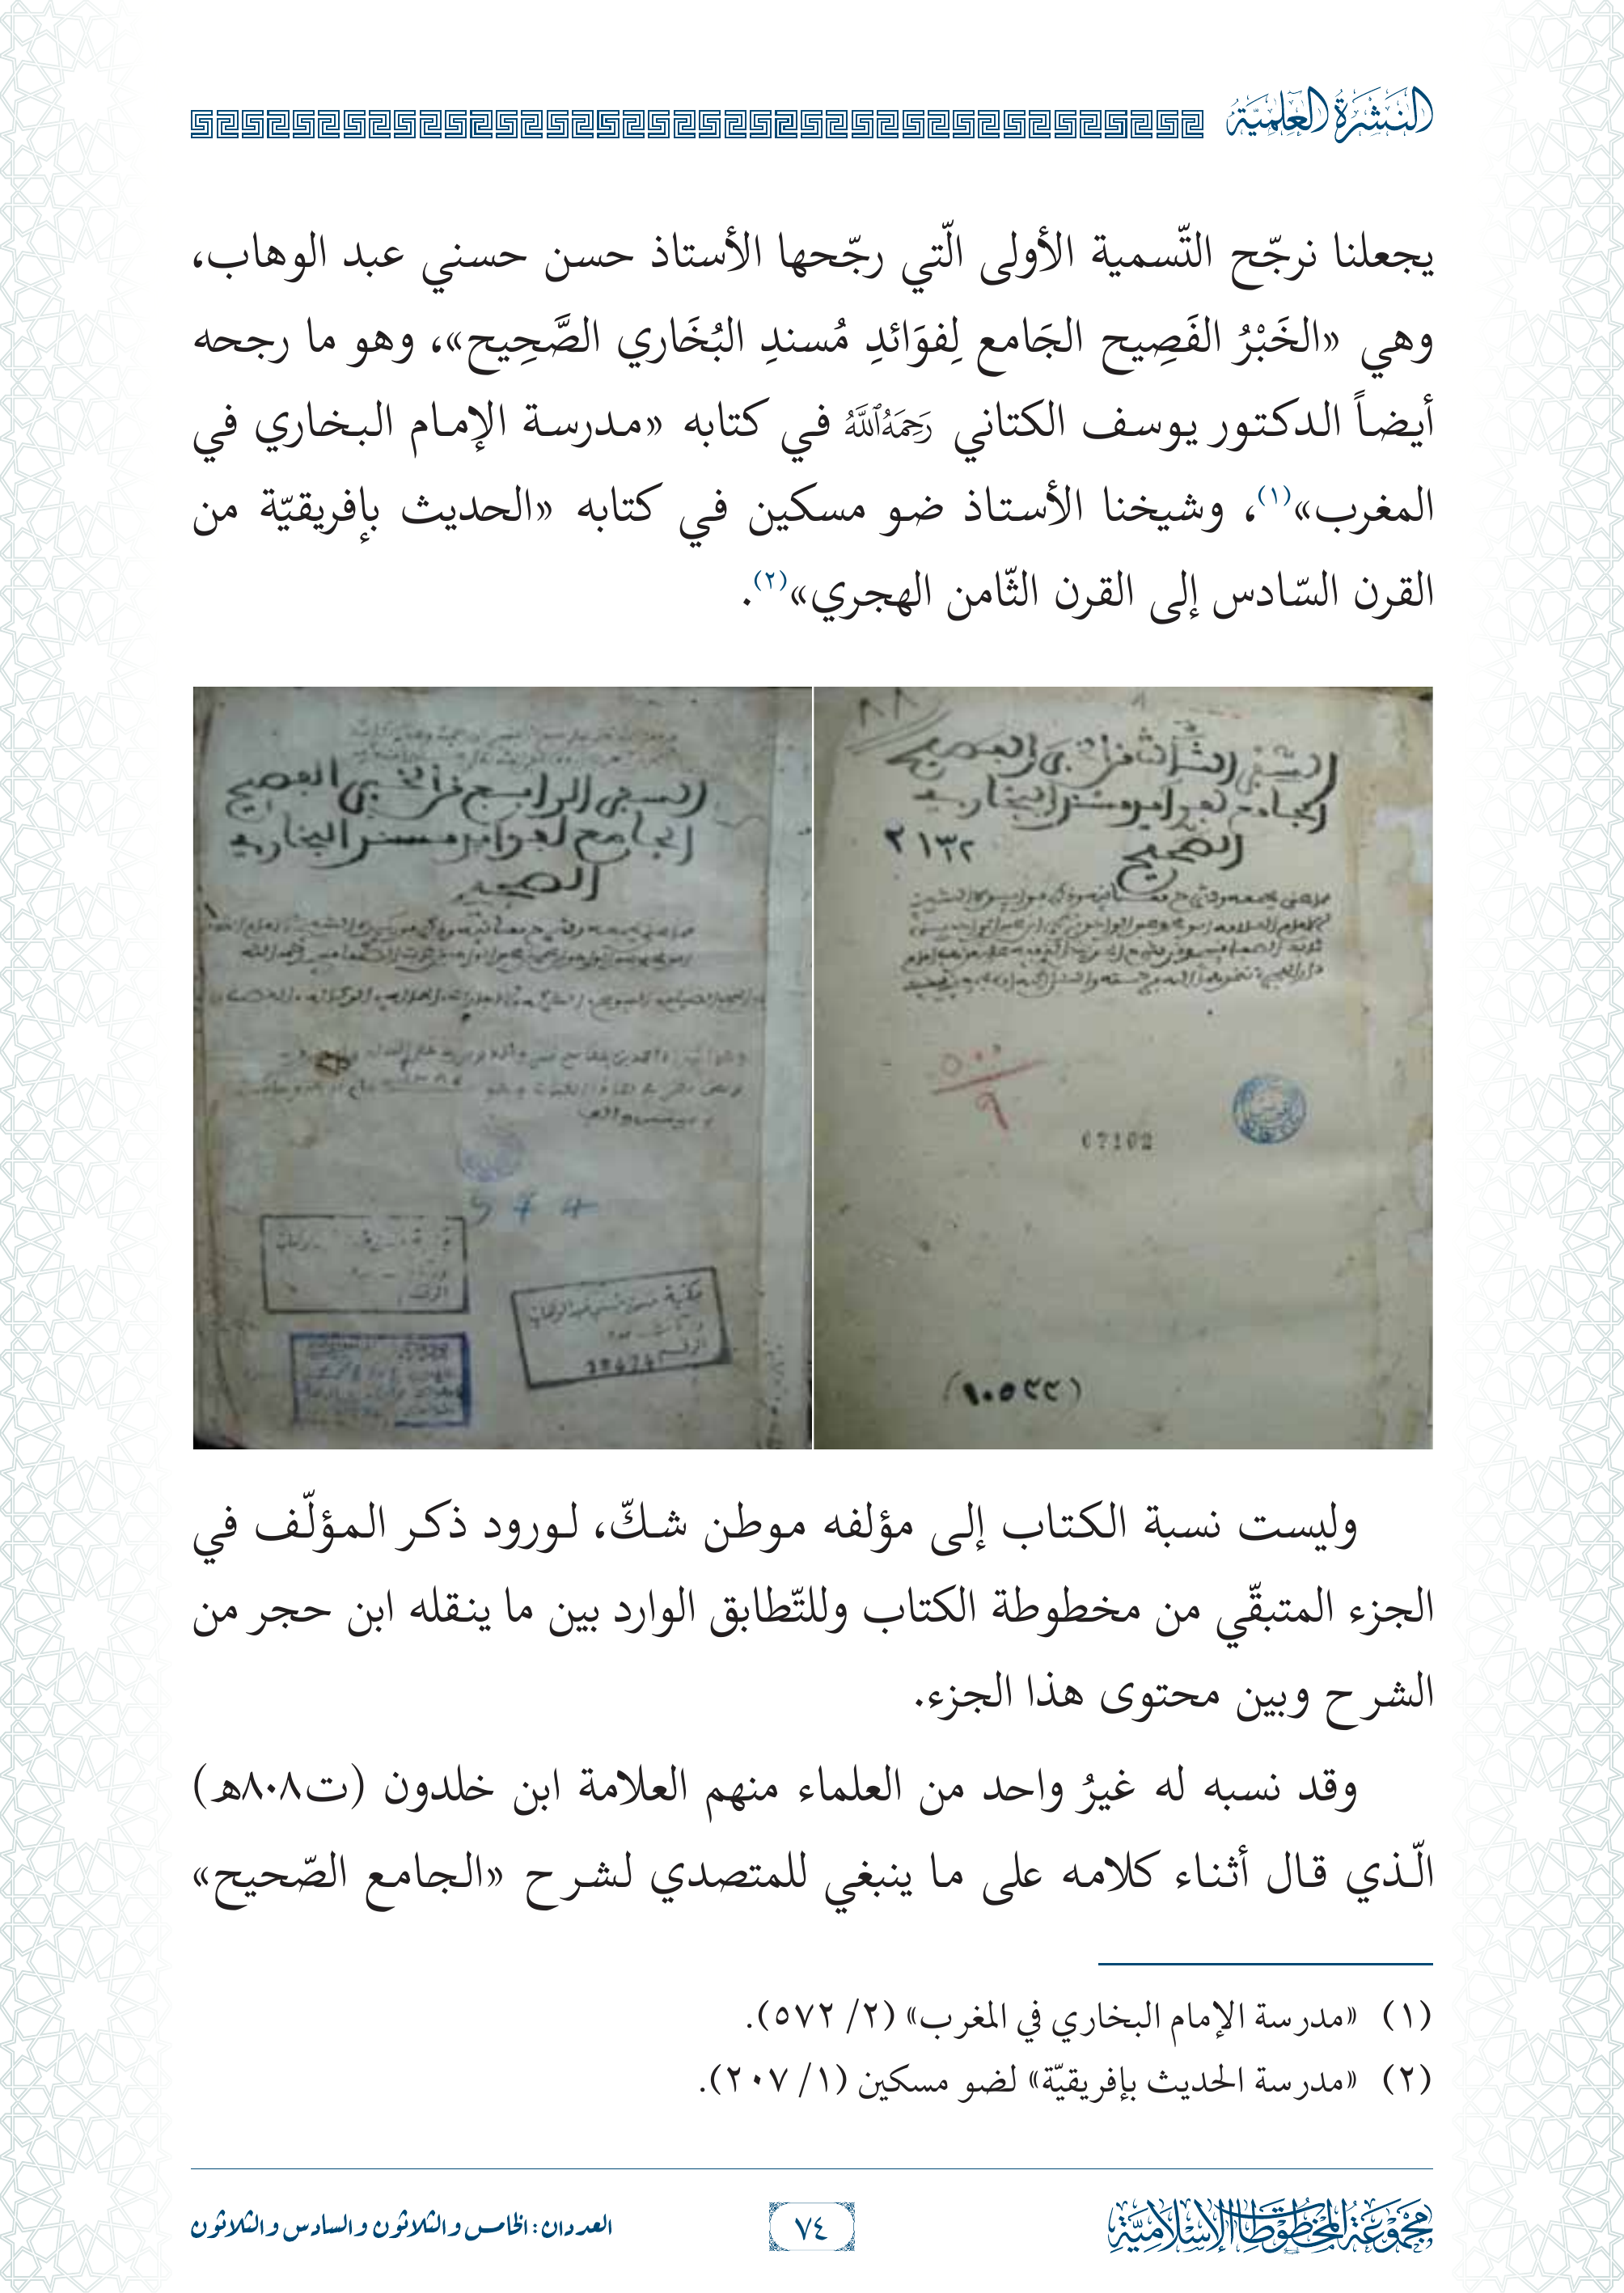 النشرة العلمية
يجعلنا نرجّح التّسمية الأولى الّتي رجّحها الأستاذ حسن حسني عبد الوهاب،
وهي «الخَبْرُ الفَصِيح الجَامع لِفوَائدِ مُسندِ البُخَاري الصَّحِيح»، وهو ما رجحه
أيضاً الدكتور يوسف الكتاني رَحِمَهُ ٱللَّهُ في كتابه «مدرسة الإمام البخاري في
المغرب»(١)، وشيخنا الأستاذ ضو مسكين في كتابه «الحديث بإفريقيّة من
القرن السّادس إلى القرن الثّامن الهجري»(٢).
السفر الثالث من الخبر الفصيح
الجامع لفوائد مسند البخاري
الصحيح
٢١٣٢
٥٠٠
٩
67102
(١٠٥٢٢)
السفر الرابع من الخبر الفصيح
الجامع لفوائد مسند البخاري
الصحيح
مكتبة حسن حسني عبد الوهاب
الرقم
وليست نسبة الكتاب إلى مؤلفه موطن شكّ، لورود ذكر المؤلّف في
الجزء المتبقّي من مخطوطة الكتاب وللتّطابق الوارد بين ما ينقله ابن حجر من
الشرح وبين محتوى هذا الجزء.
وقد نسبه له غيرُ واحد من العلماء منهم العلامة ابن خلدون (ت٨٠٨هـ)
الّذي قال أثناء كلامه على ما ينبغي للمتصدي لشرح «الجامع الصّحيح»
(١) «مدرسة الإمام البخاري في المغرب» (٢/ ٥٧٢).
(٢) «مدرسة الحديث بإفريقيّة» لضو مسكين (١/ ٢٠٧).
مجموعة المخطوطات الإسلامية
٧٤
العددان: الخامس والثلاثون والسادس والثلاثون